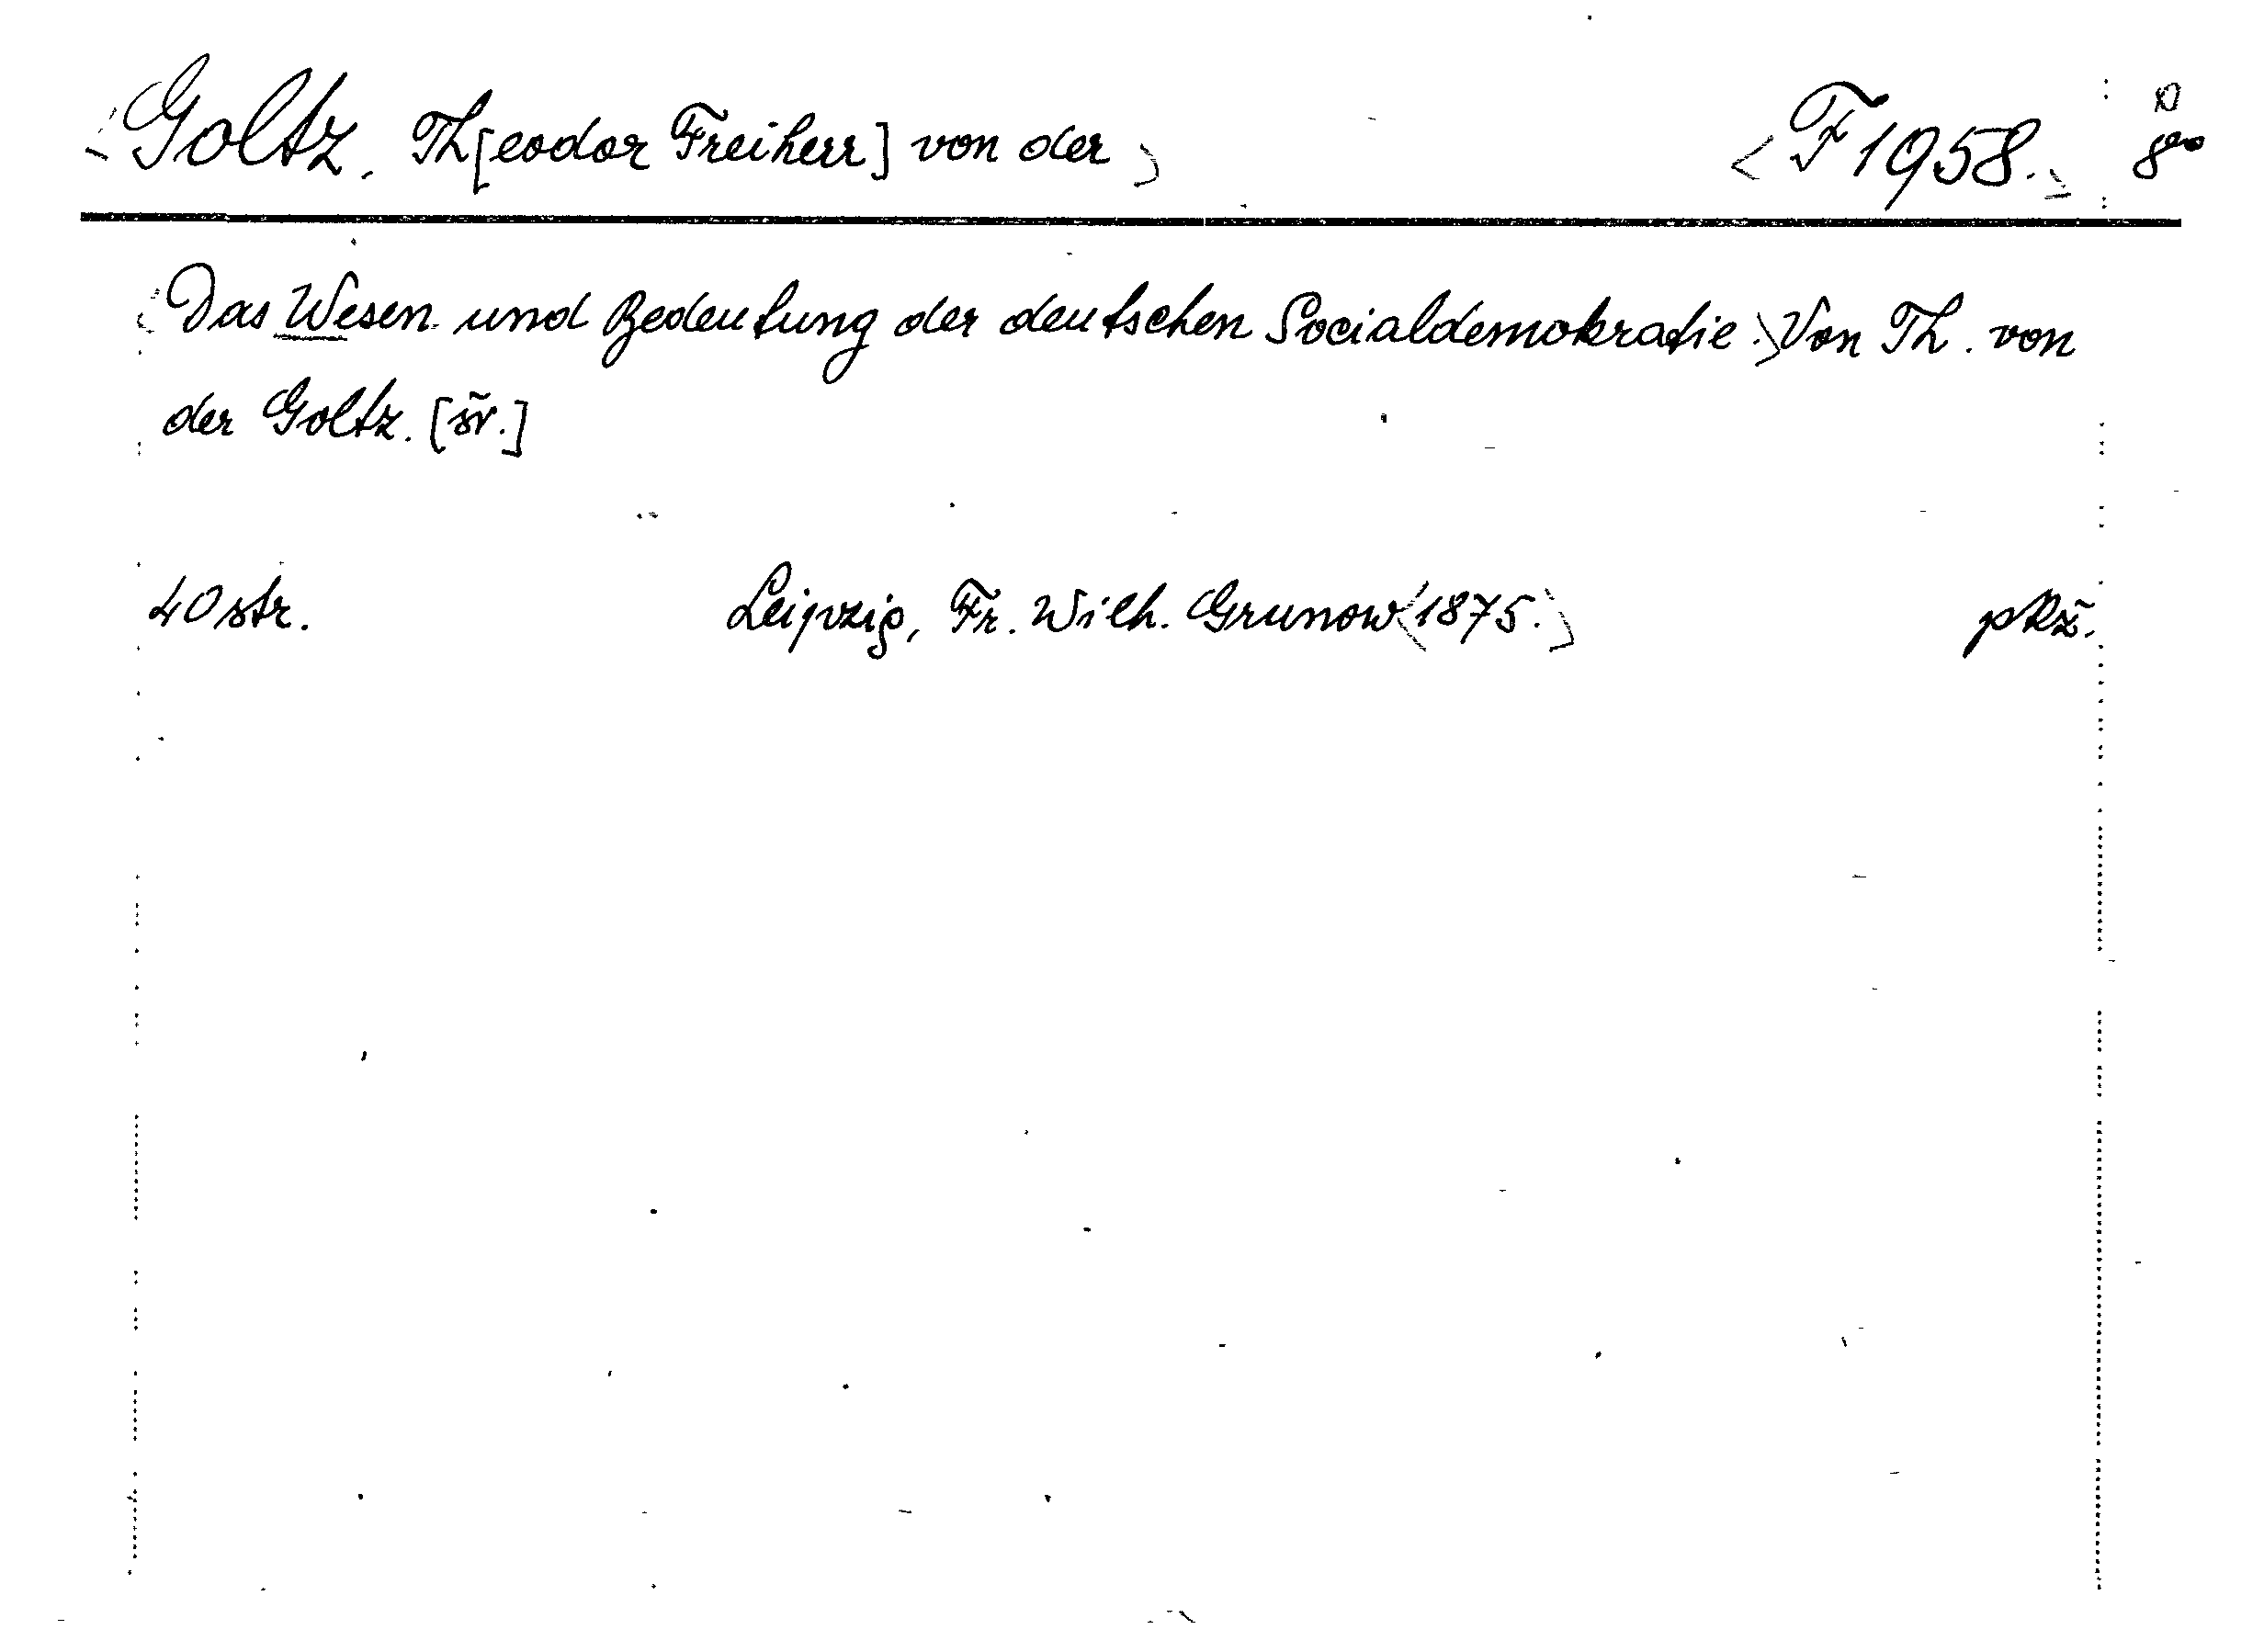 <Goltz, Th[eodor Freiherr] von der> <F 1958.> 8°
<Das Wesen und Bedeutung der deutschen Socialdemokratie.> Von Th. von
der Goltz. [šv.]
40 str. Leipzig, Fr. Wilh. Grunow <1875.> pRž.